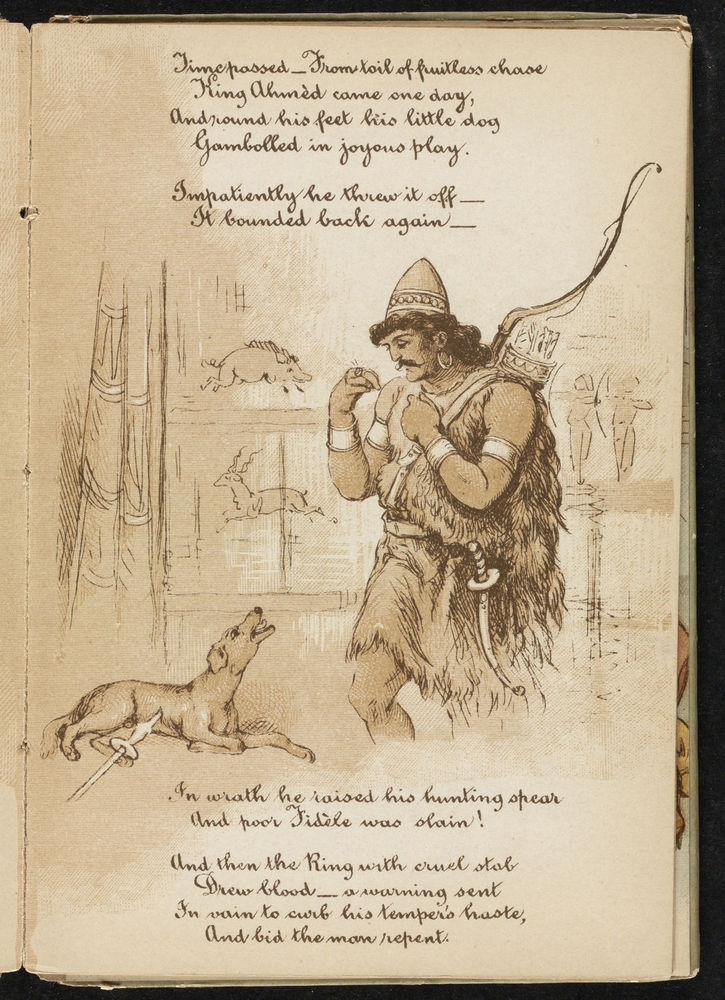 Time passed — From toil of fruitless chase
King Ahmèd came one day,
And round his feet his little dog
Gambolled in joyous play.
Impatiently he threw it off —
It bounded back again —
In wrath he raised his hunting spear
And poor Fidèle was slain!
And then the Ring with cruel stab
Drew blood — a warning sent
In vain to curb his temper's haste,
And bid the man repent.